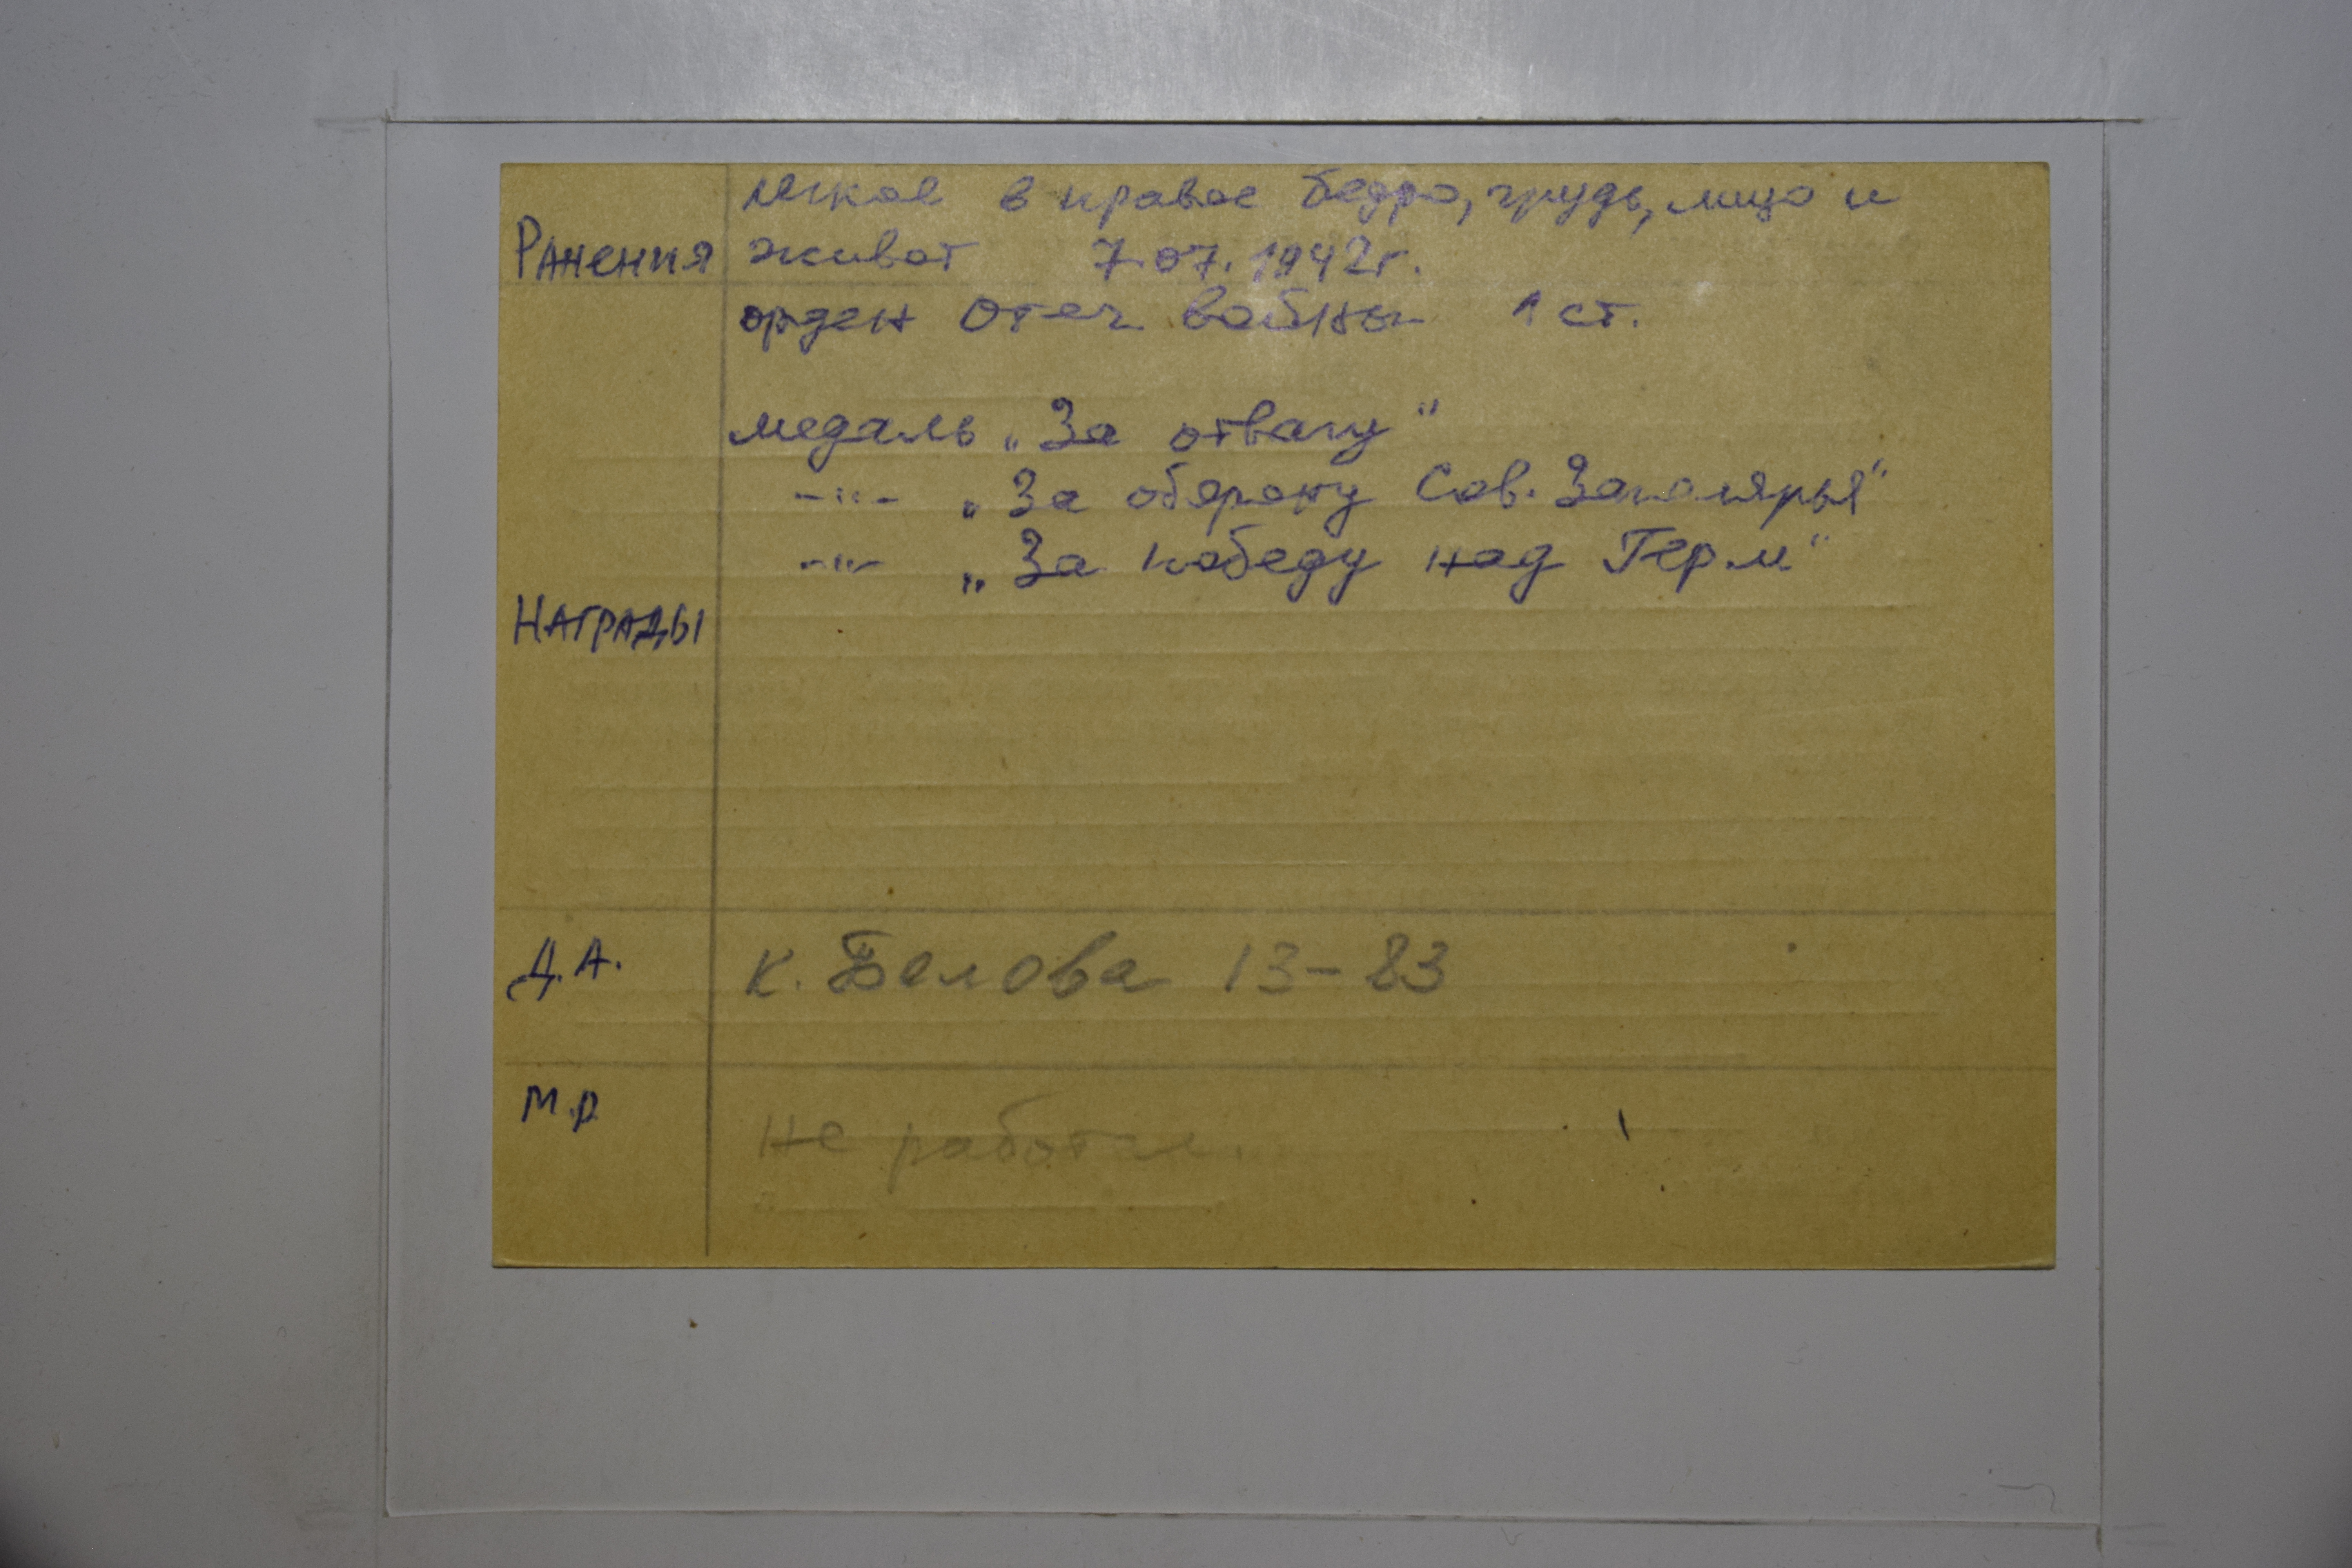 легкое в правое бедро, грудь, лицо и
Ранения живот 7.07.1942г.
орден Отеч войны 1 ст.
медаль „За отвагу"
-"- „За оборону Сов. Заполярья"
-"- „За победу над Герм"
Награды
Д.А. К. Белова 13-83
М.р не работал.